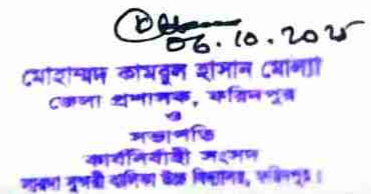 06.10.2025
মোহাম্মদ কামরুল হাসান মোল্যা
জেলা প্রশাসক, ফরিদপুর
ও
সভাপতি
কার্যনির্বাহী সংসদ
সারদা সুন্দরী বালিকা উচ্চ বিদ্যালয়, ফরিদপুর।